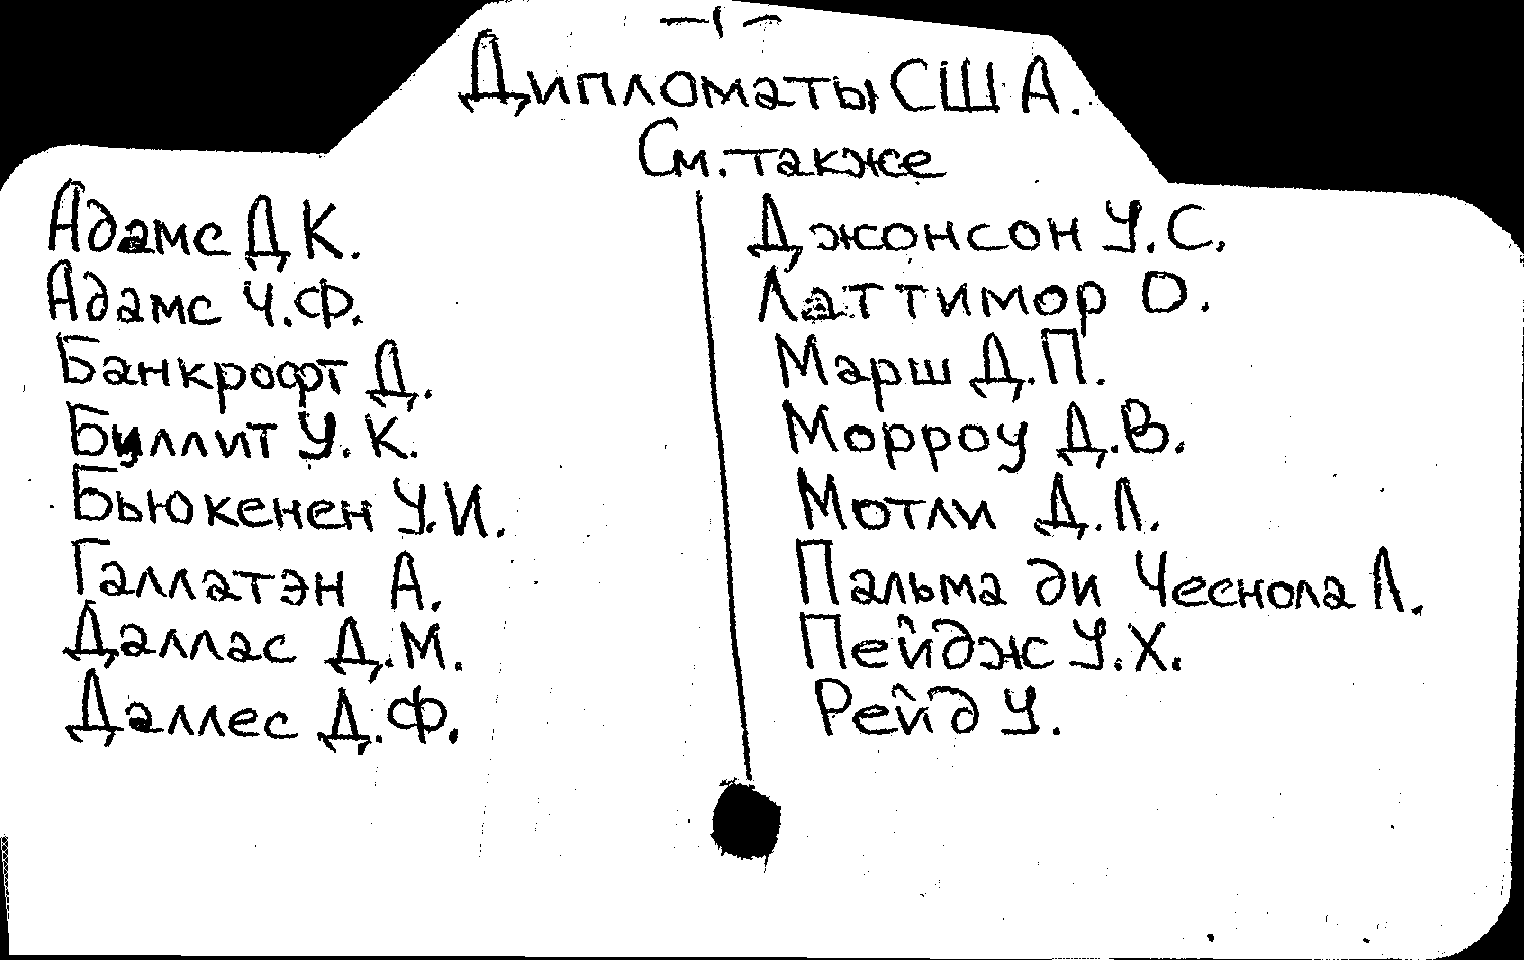 -1-
Дипломаты США.
См. также
Адамс Д К.
Адамс Ч.Ф.
Банкрофт Д.
Буллит У. К.
Бьюкенен У.И.
Галлатэн А.
Даллас Д.М.
Даллес Д.Ф.
Джонсон У.С.
Латтимор О.
Марш Д.П.
Морроу Д.В.
Мотли Д.Л.
Пальма ди Чеснола Л.
Пейдж У.Х.
Рейд У.